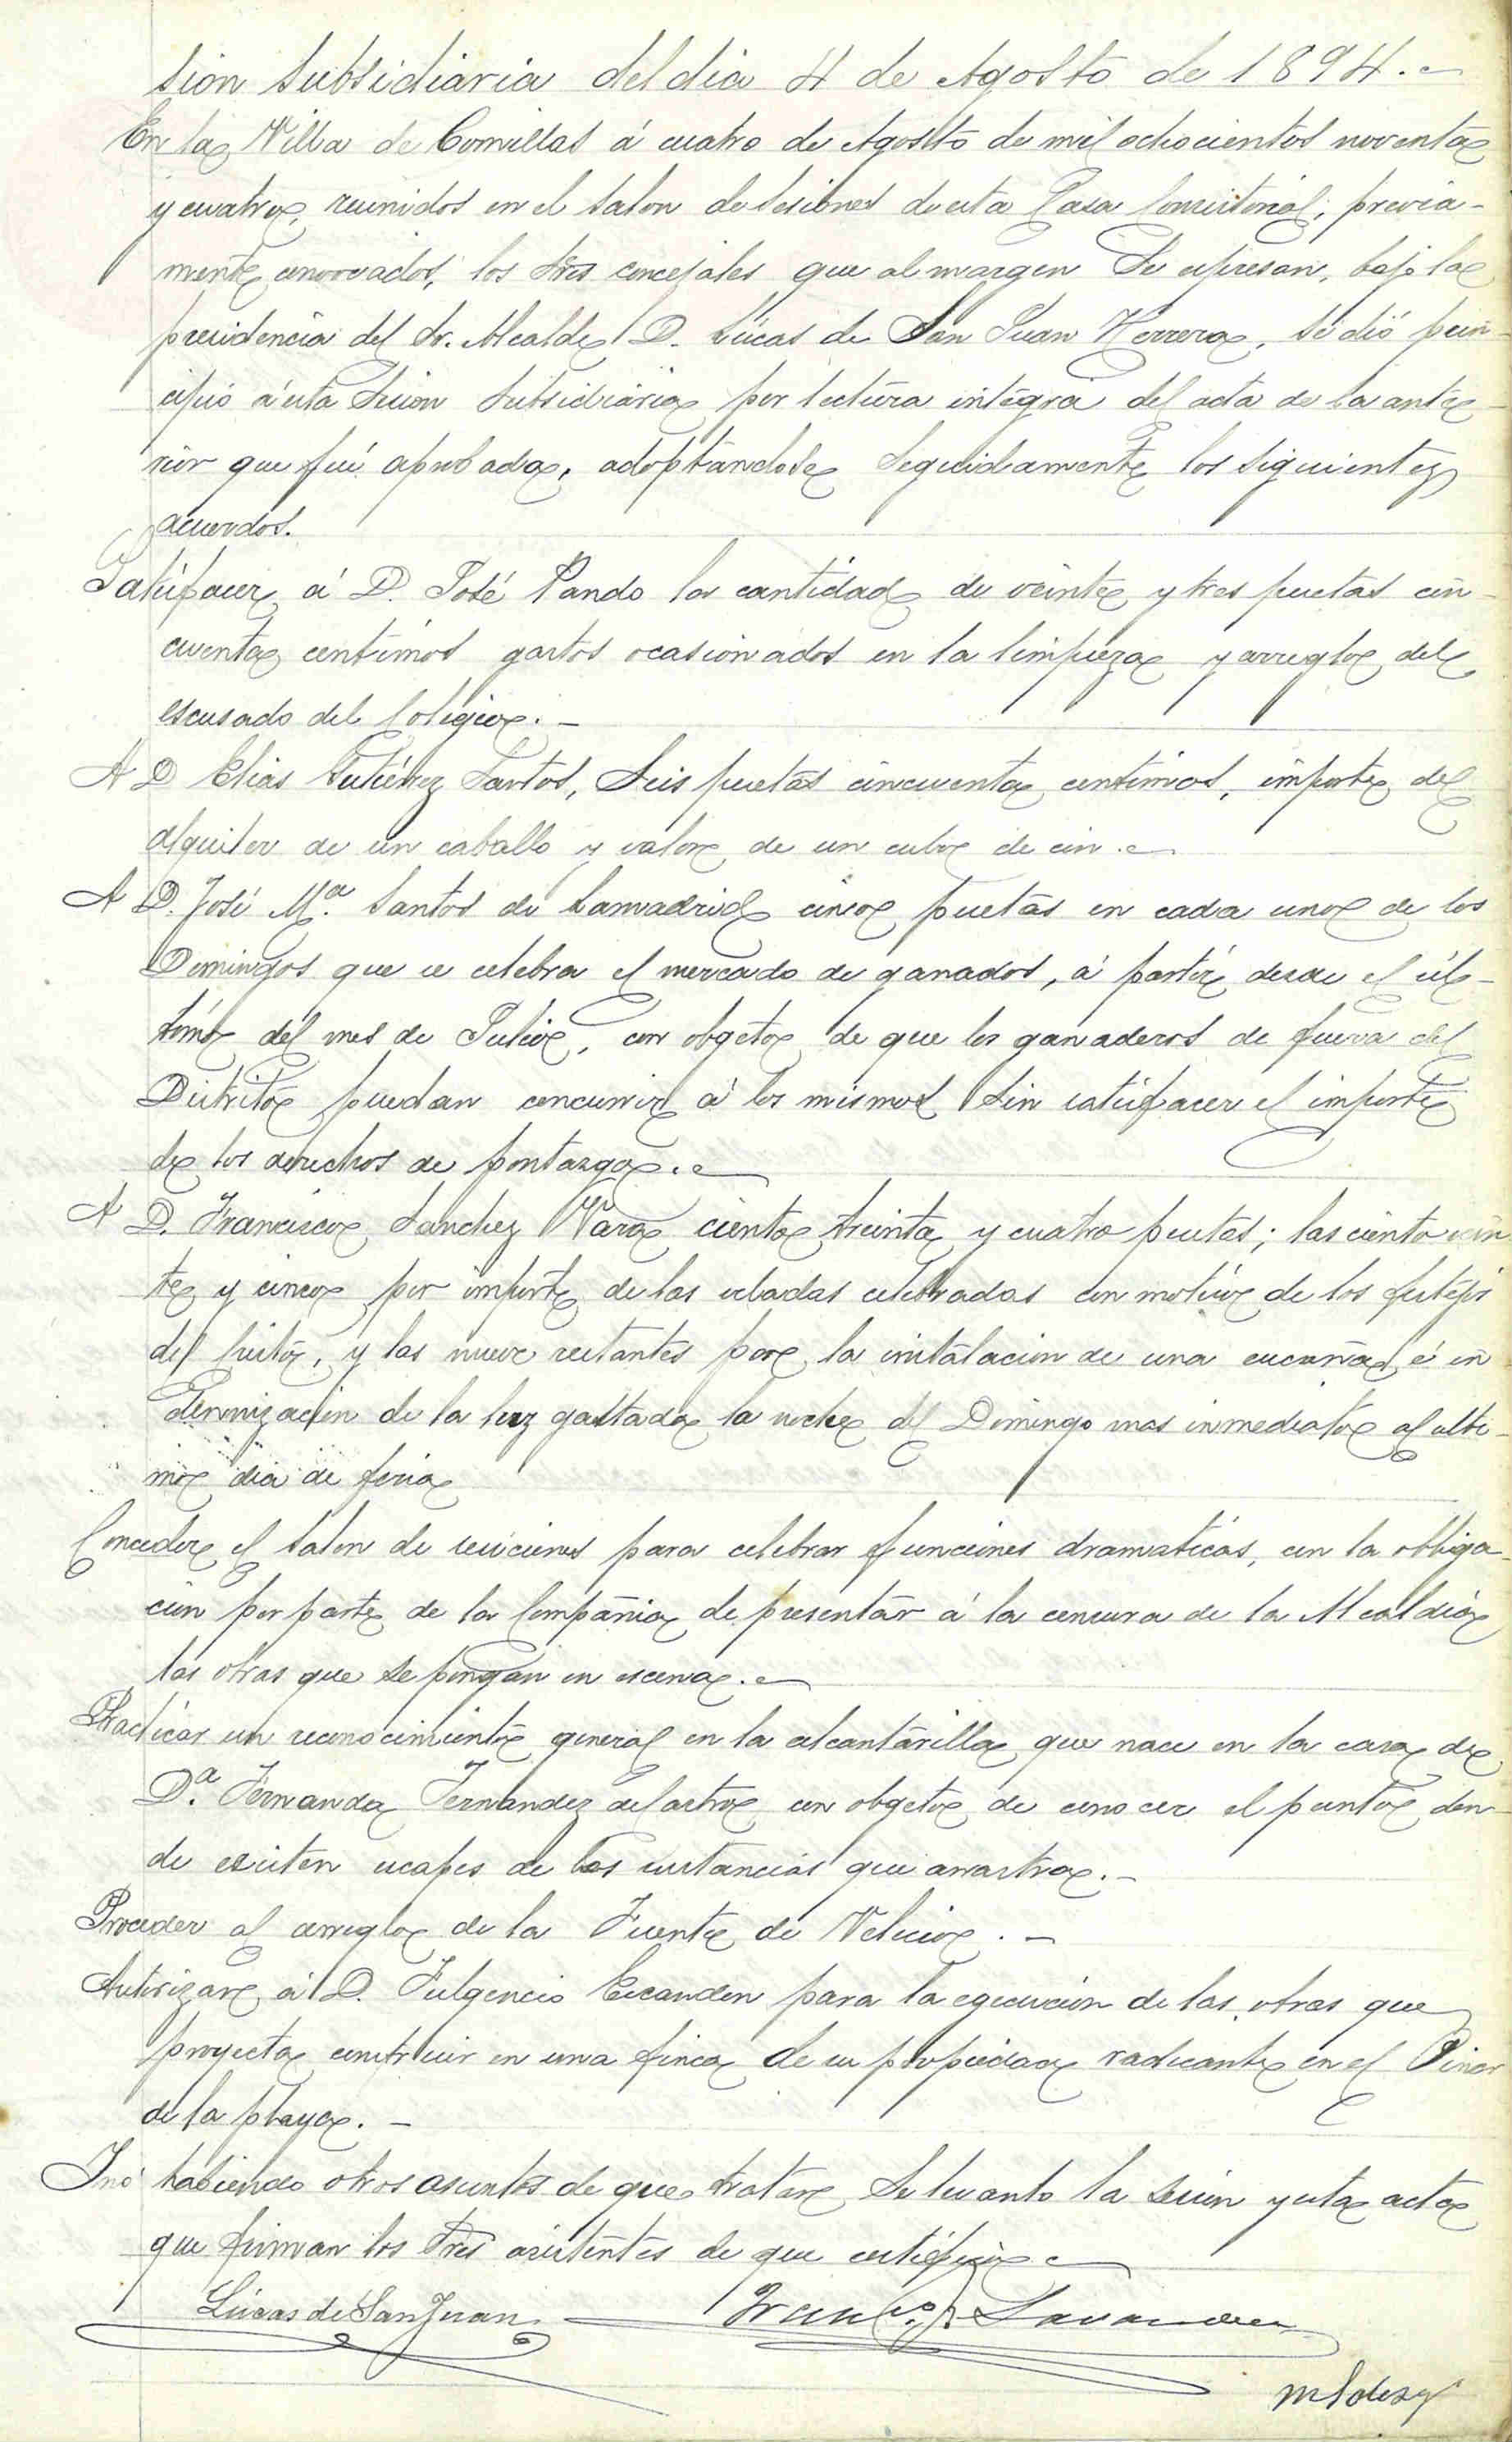 sion subsidiaria del dia 4 de Agosto de 1894.
En la Villa de Comillas á cuatro de Agosto de mil ochocientos noventa
y cuatro, reunidos en el salon de sesiones de esta Casa Consistorial, previa-
mente convocados, los Sres concejales que al margen se espresan, bajo la
presidencia del Sr. Alcalde D. Lúcas de San Juan Herrera, se dió prin-
cipio á esta sesion subsidiaria por lectura integra del acta de la ante-
rior que fué aprobada, adoptándose seguidamente los siguientes
acuerdos.
Satisfacer á D. José Pando la cantidad de veinte y tres pesetas cin-
cuenta centimos gastos ocasionados en la limpieza y arreglo del
escusado del Colegio.-
A D Elias Gutiérrez Santos, seis pesetas cincuenta centimos, importe del
alquiler de un caballo y valor de un cubo de cin.
A D. José M.ª Santos de Lamadrid cinco pesetas en cada uno de los
Domingos que se celebra el mercado de ganados, á partir desde el úl-
timo del mes de Julio, con obgeto de que los ganaderos de fuera del
Distrito puedan concurrir á los mismos sin satisfacer el importe
de los derechos de pontazgo.
A D. Francisco Sanchez Vara ciento treinta y cuatro pesetas; las ciento vein
te y cinco por importe de las veladas celebradas con motivo de los festejos
del Cristo, y las nueve restantes por la instalacion de una cucaña é in
demnizacion de la luz gastada la noche del Domingo mas inmediato al ulti-
mo dia de feria
Conceder el salon de sesiones para celebrar funciones dramaticas, con la obliga-
cion por parte de la Compañia de presentar á la censura de la Alcaldia
las obras que se pongan en escena.
Practicar un reconocimiento general en la alcantarilla que nace en la casa de
D.ª Fernanda Fernandez de Castro con obgeto de conocer el punto don-
de existen escapes de las sustancias que arrastra.-
Proceder al arreglo de la Fuente de Velecio.-
Autorizar á D. Fulgencio Escandon para la egecucion de las obras que
proyecta construir en una finca de su propiedad radicante en el Pinar
de la playa.-
Y no habiendo otros asuntos de que tratar se levanto la sesion y esta acta
que firman los Sres asistentes de que certifico
Lúcas de San Juan Franco.